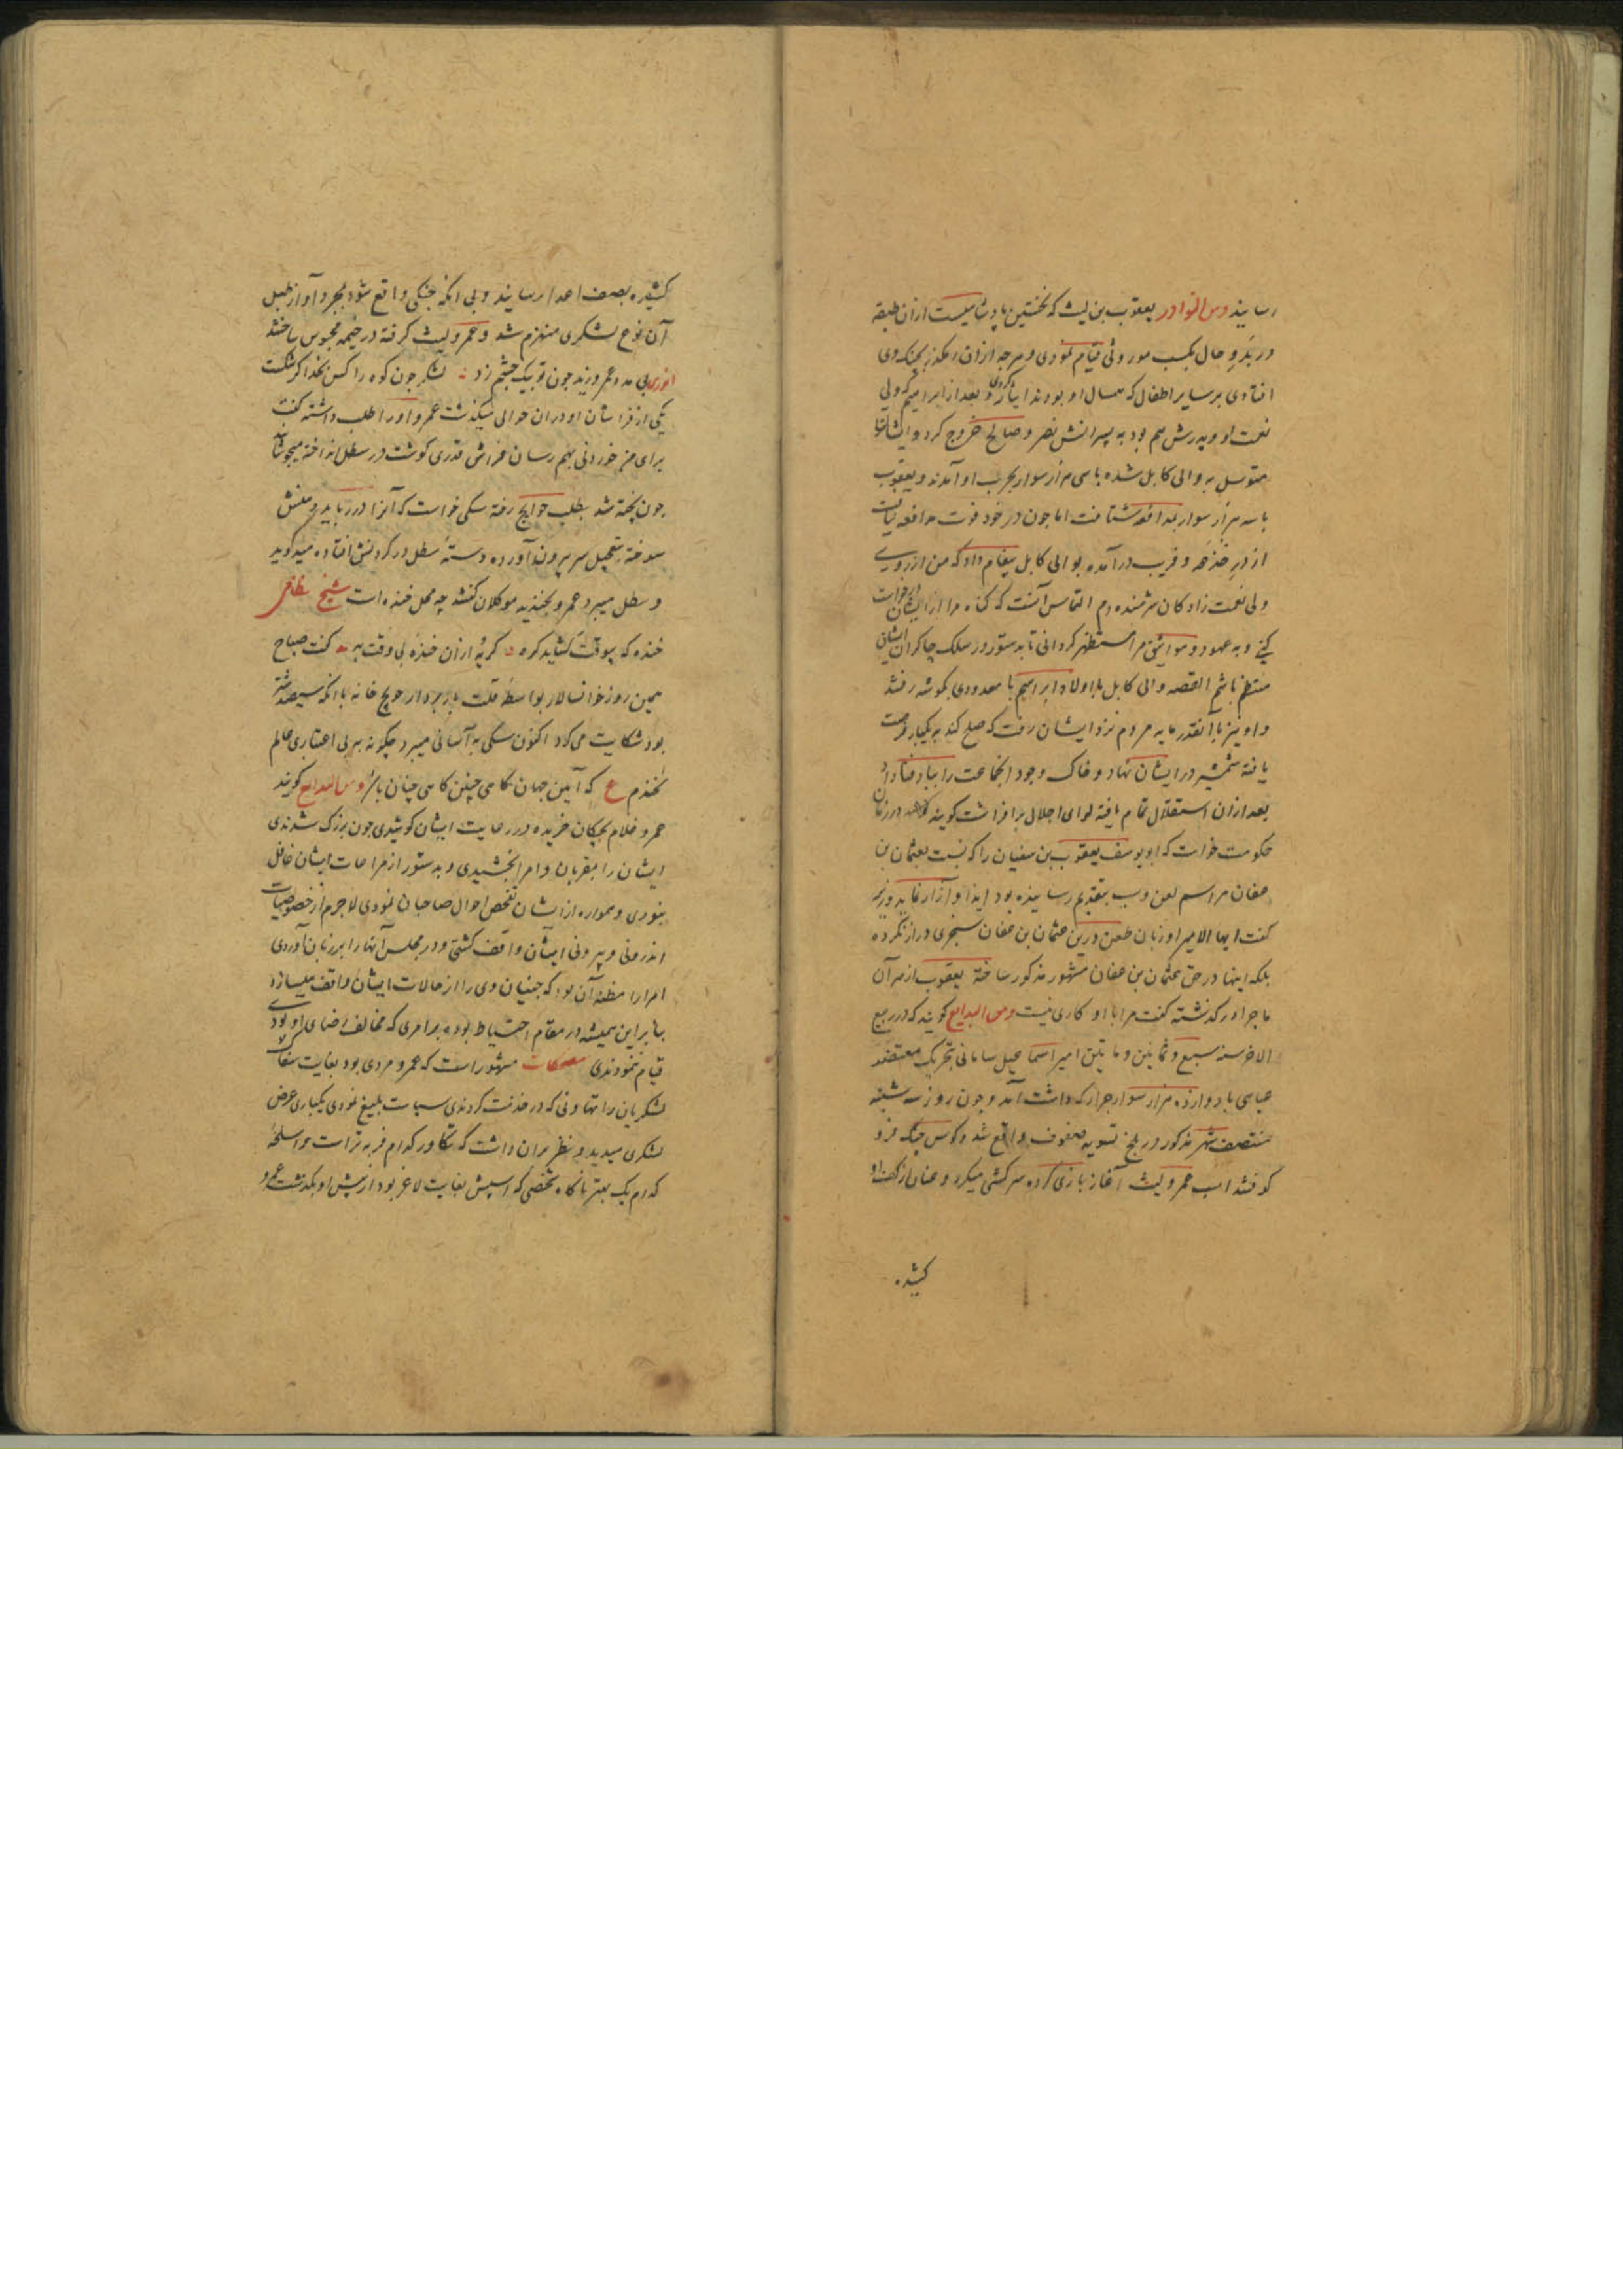 رسانید ومن النوادر یعقوب بن لیث که نخستین پادشاهیست ازان طبقه
در بدو حال بکسب موروثی قیام نمودی و هرچه ازان رهگذر بچنک وی
افتادی بر سایر اطفال که همسال او بودند ایثار کردی و بعد از ابراهیم که ولی
نعمت او و پدرش هم بود به پسرانش نصر و صالح خروج کرد و ایشان
متوسل به والی کابل شده با سی هزار سوار بحرب او آمدند و یعقوب
با سه هزار سوار بمدافعه شتافت اما چون در خود قوت مدافعه نیافت
از در خدعه و فریب درآمده بوالی کابل پیغام داد که من از روی
ولی نعمت زادکان شرمنده ام التماس آنست که کناه مرا از ایشان درخواست
کنی و به عهود و مواثیق مرا مستظهر کردانی تا بدستور در سلک چاکران ایشان
منتظم باشم القصه والی کابل با اولاد ابراهیم با معدودی بکوشه رفتند
و او نیز با آنقدر مایه مردم نزد ایشان رفت که صلح کند به یکبار فرصت
یافته شمشیر در ایشان نهاد و خاک وجود آنجماعت را بباد فنا داد
بعد ازان استقلال تمام یافته لوای اجلال برافراشت کویند که در زمان
حکومت خواست که ابو یوسف یعقوب بن سفیان را که نسبت بعثمان بن
عفان مراسم لعن و سب بتقدیم رسانیده بود ایذا و آزار نماید وزیر
کفت ایها الامیر او زبان طعن درین عثمان بن عفان سجزی دراز نکرده
بلکه اینها در حق عثمان بن عفان مشهور مذکور ساخته یعقوب از سر آن
ماجرا درکذشته کفت مرا با او کاری نیست ومن البدایع کویند که در ربیع
الاخر سنه سبع و ثمانین و مایتین امیر اسماعیل سامانی بتحریک معتضد
عباسی با دوازده هزار سوار جرار که داشت آمد و چون روز سه شنبه
منتصف شهر مذکور در بلخ تسویه صفوف واقع شد و کوس جنک فرو
کوفتند اسب عمرو لیث آغاز بازی کرده سرکشی میکرد و عنان از کف او
کشیده
کشیده بصف اعدا رسانید و بی انکه جنکی واقع شود بمجرد آواز طبل
آن نوع لشکری منهزم شد و عمرو لیث کرفته در خیمه محبوس ساختند
انوری بی مدد عمرو زید چون تو بیک چشم زد لشکر چون کوه را کس نخدا کر شکست
یکی از فراشان او دران حوالی میکذشت عمرو او را طلب داشته کفت
برای من خوردنی بهم رسان فراش قدری کوشت در سطل انداخته میجوشاند
چون پخته شد بطلب حوایج رفته سکی خواست که آنرا در رباید دهنش
سوخته بتعجیل سر بیرون آورده دسته سطل در کردنش افتاده میدوید
و سطل میبرد عمرو بخندید موکلان کفتند چه محل خنده است شیخ نظامی
خنده که بیوقت کشاید کره کریه ازان خنده بی وقت به کفت صباح
همین روز خوانسالار بواسطه قلت باربردار حویج خانه با انکه سیصد شتر
بود شکایت می کرد اکنون سکی به آسانی میبرد چکونه بر بی اعتباری عالم
نخندم ع که آیین جهان کاهی چنین کاهی چنان باشد ومن البدایع کویند
عمرو غلام بچکان خریده در رعایت ایشان کوشیدی چون بزرک شدندی
ایشان را بمقربان و امرا بخشیدی و بدستور از مراعات ایشان غافل
نبودی و همواره از ایشان تفحص احوال صاحبان نمودی لاجرم از خصوصیات
اندرونی و بیرونی ایشان واقف کشتی و در مجلس آنها را بر زبان آوردی
امرا را مظنه آن بود که جنیان وی را از حالات ایشان واقف میسازد
بنابراین همیشه در مقام احتیاط بوده بر امری که مخالف رضای او بودی
قیام ننمودندی مضحکات مشهور است که عمرو مردی بود بغایت سفاک
لشکریان را بتهاونی که در خدمت کردندی سیاست بلیغ نمودی یکباری عرض
لشکری میدید و نظر بران داشت که تکاور کدام فربه تر است و اسلحه
کدام یک بهتر ناکاه شخصی که اسپش بغایت لاغر بود از پیش او بکذشت عمرو